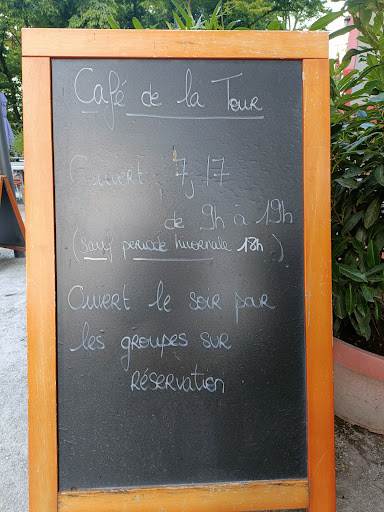 Café de la Tour
Ouvert 7j/7
de 9h à 19h
(sauf période hivernale 18h)
Ouvert le soir par
les groupes sur
réservation